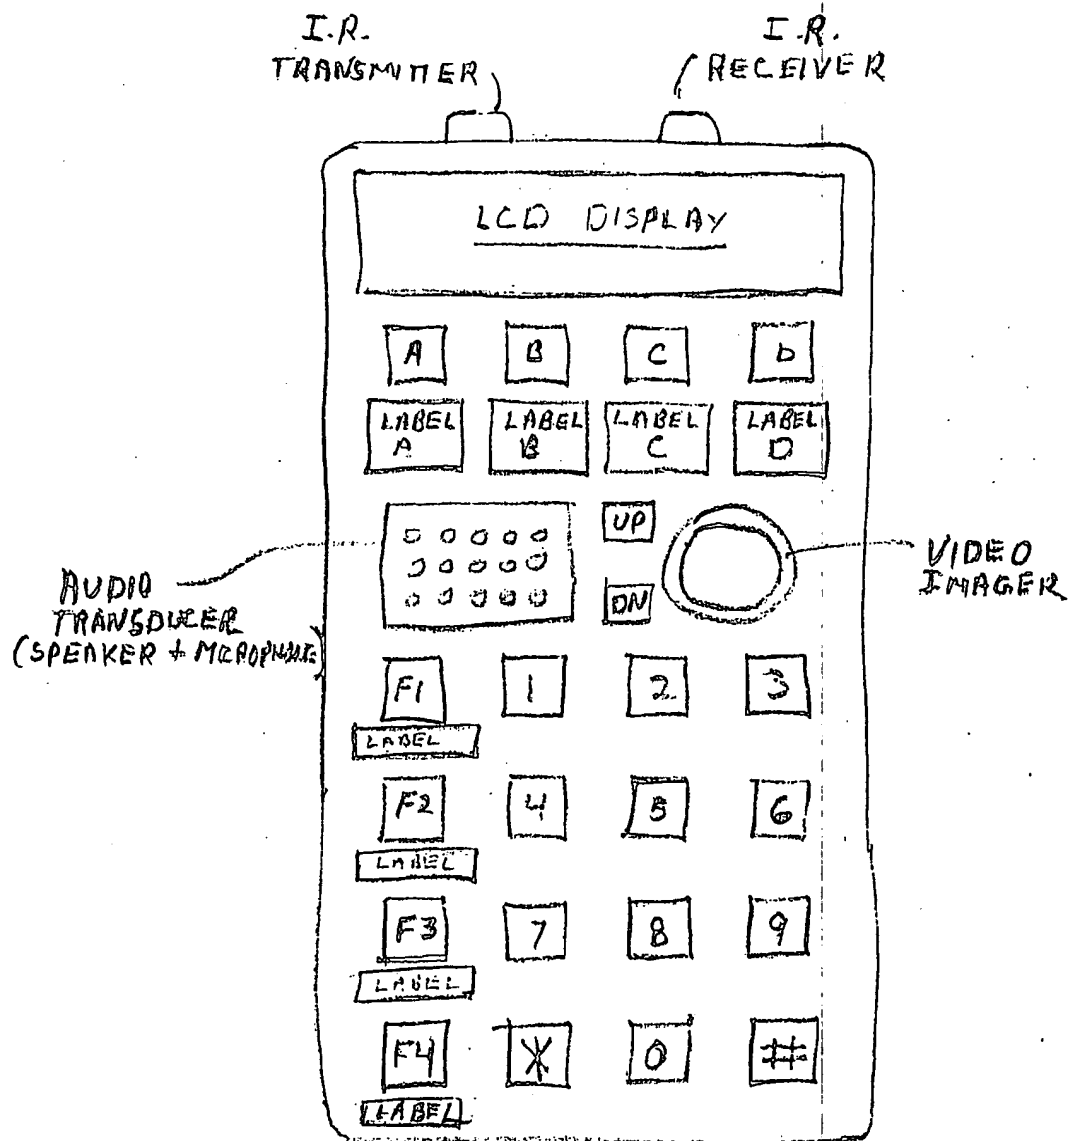 I.R.
TRANSMITTER
I.R.
RECEIVER
LCD DISPLAY
A B C D
LABEL A
LABEL B
LABEL C
LABEL D
UP
DN
AUDIO
TRANSDUCER
(SPEAKER + MICROPHONE)
VIDEO
IMAGER
F1 1 2 3
LABEL
F2 4 5 6
LABEL
F3 7 8 9
LABEL
F4 * 0 #
LABEL